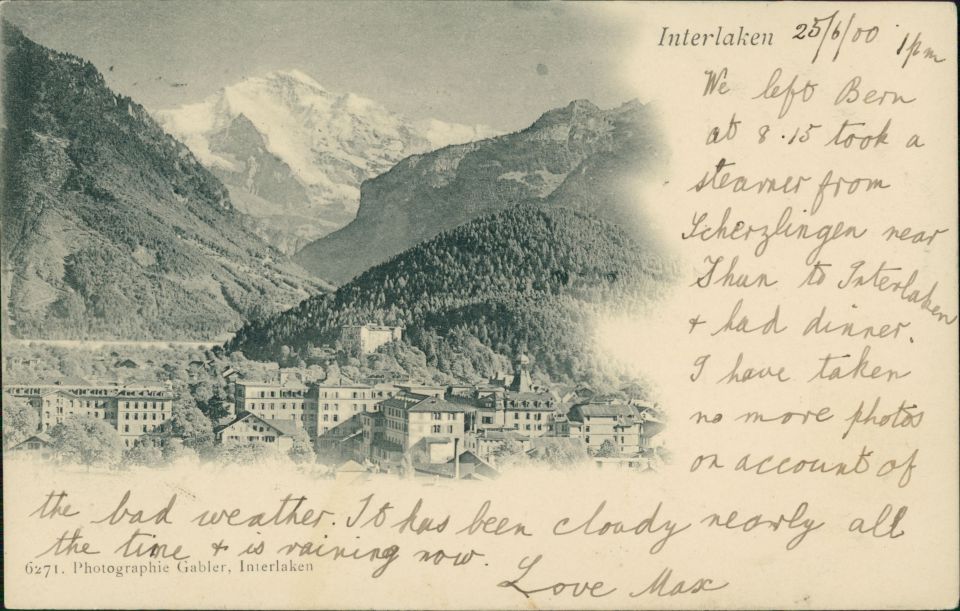 Interlaken 25/6/00 1pm
We left Bern
at 8.15 took a
steamer from
Scherzlingen near
Thun to Interlaken
+ had dinner.
I have taken
no more photos
on account of
the bad weather. It has been cloudy nearly all
the time + is raining now.
6271. Photographie Gabler, Interlaken
Love Max